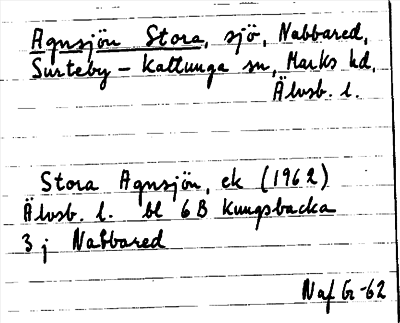 Agnsjön Stora, sjö, Nabbared,
Surteby-Kattunga sn, Marks hd,
Älvsb. l.
Stora Agnsjön, ek (1962)
Älvsb. l. bl 6B Kungsbacka
3 j Nabbared
Naf Gr -62